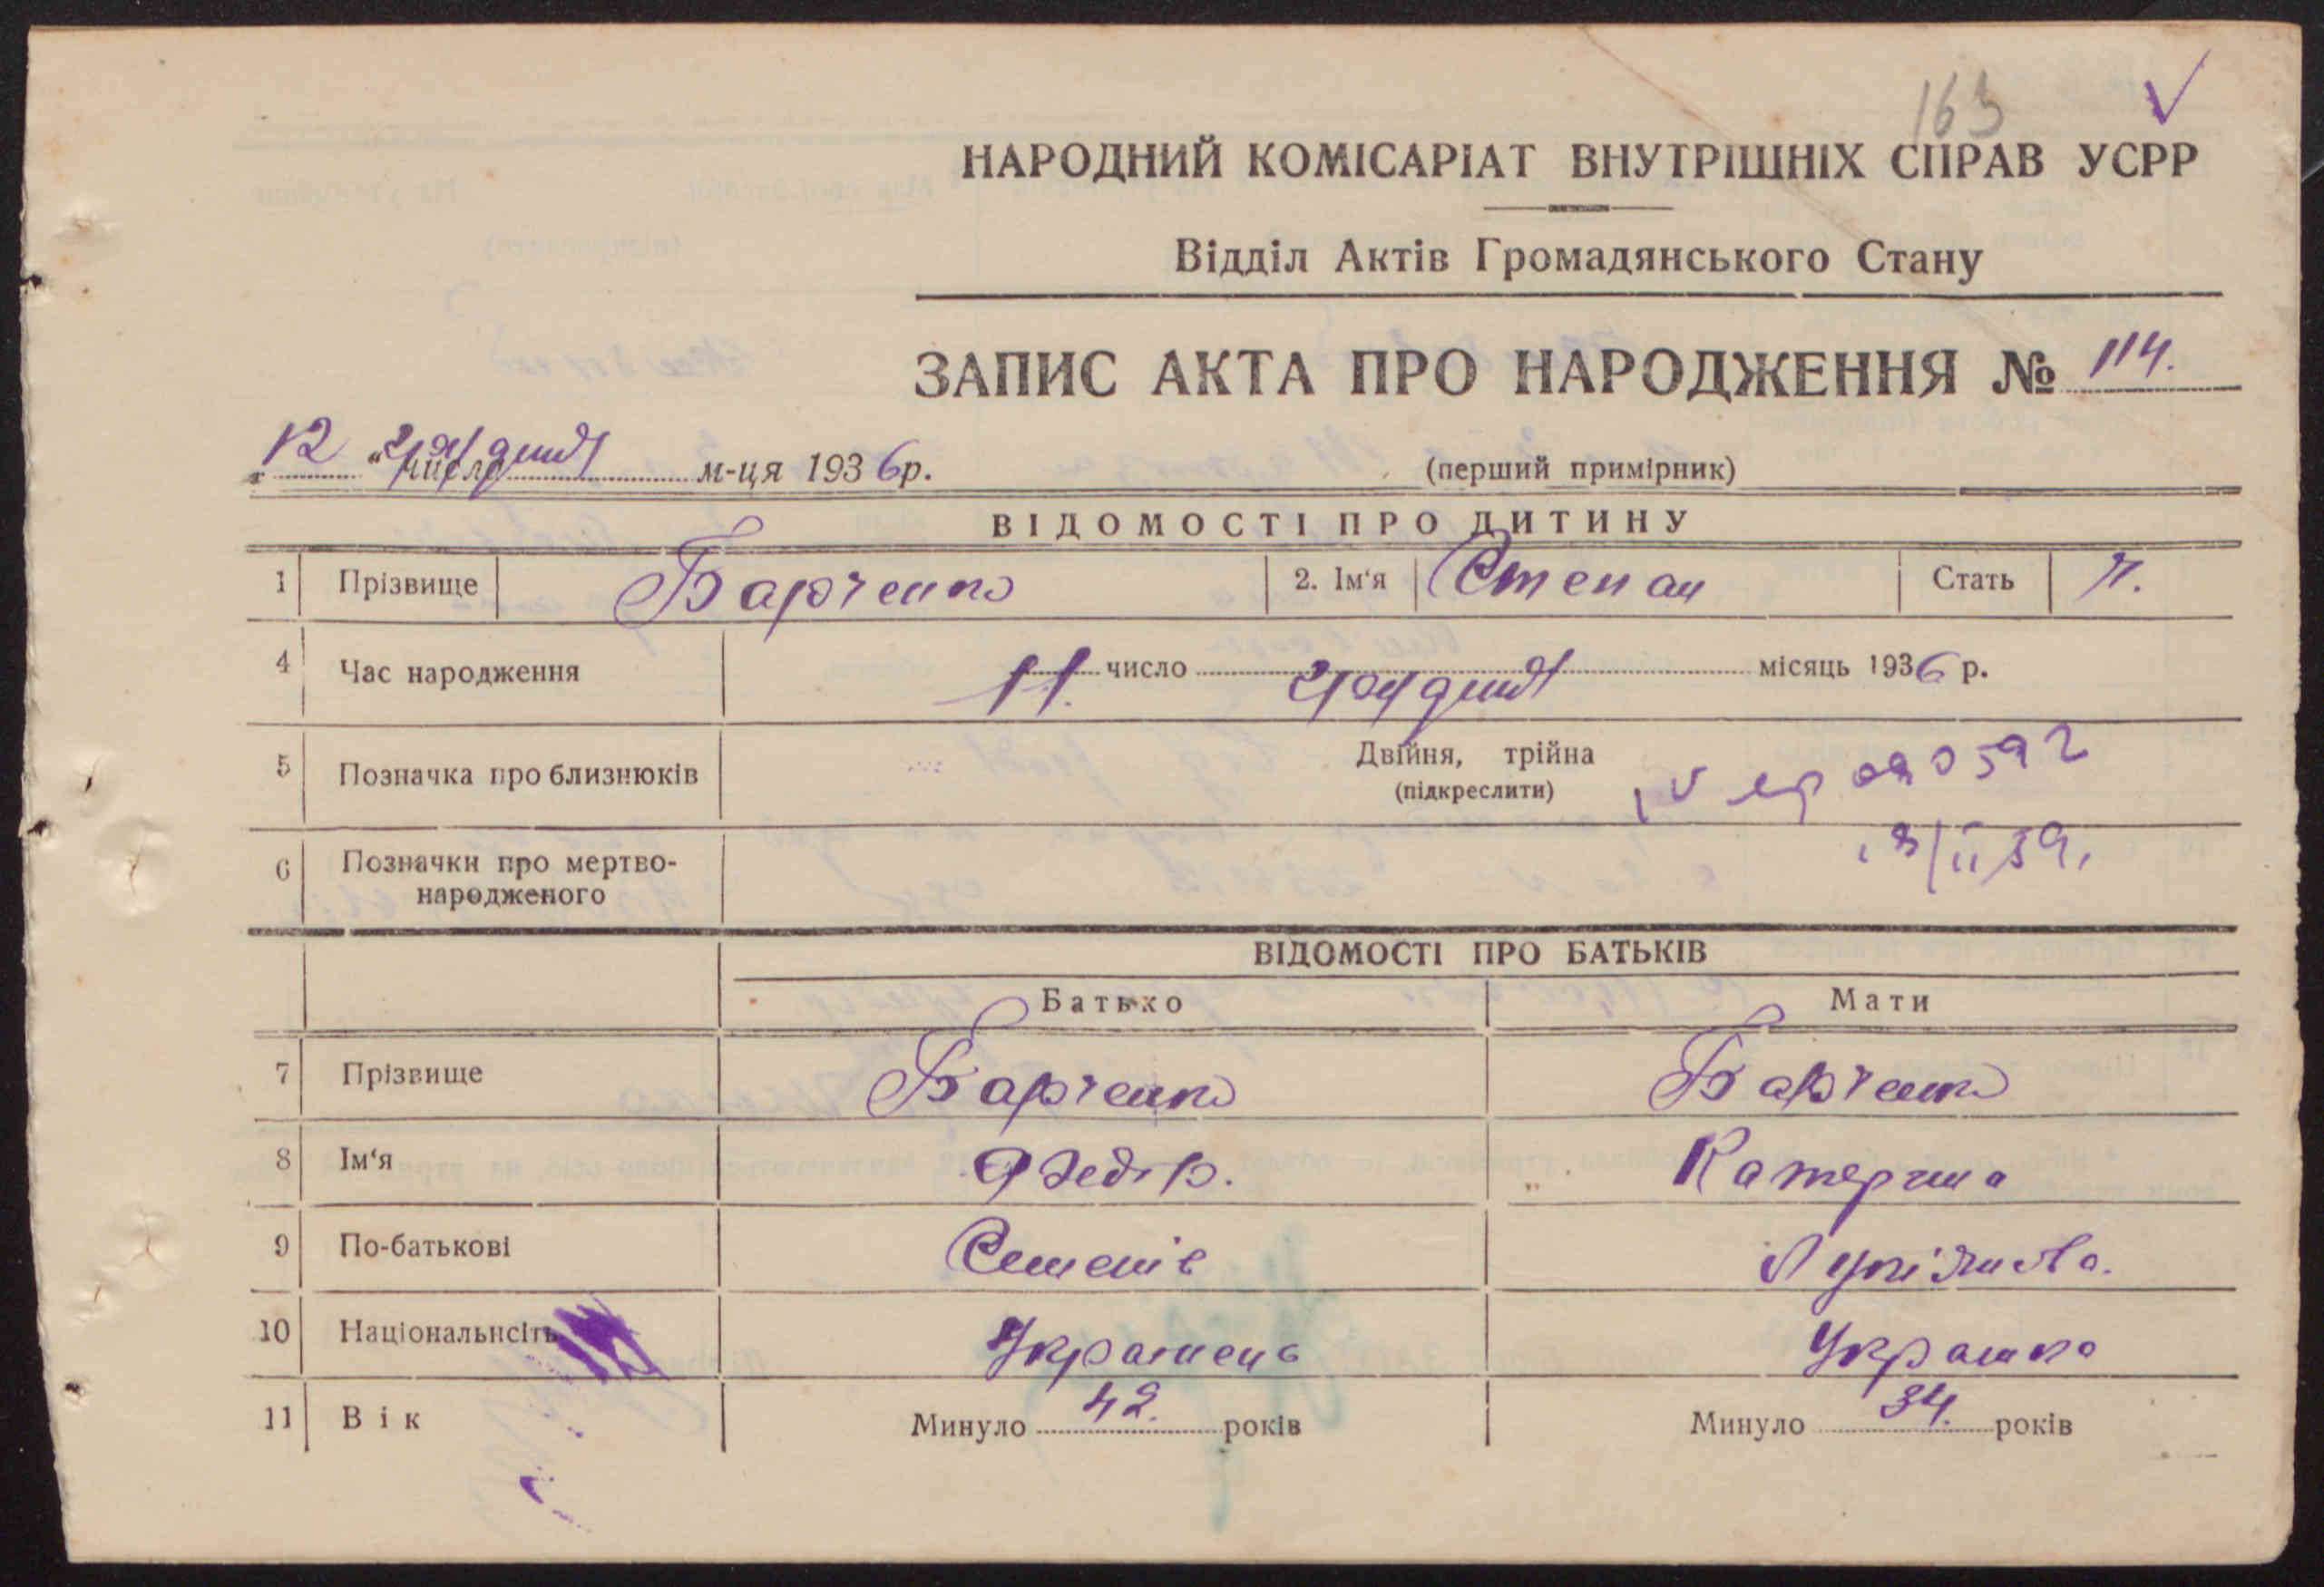 163
НАРОДНИЙ КОМІСАРІАТ ВНУТРІШНІХ СПРАВ УСРР
Відділ Актів Громадянського Стану
ЗАПИС АКТА ПРО НАРОДЖЕННЯ № 114.
12 " число грудня м-ця 1936р.
(перший примірник)
ВІДОМОСТІ ПРО ДИТИНУ
1 Прізвище Барченко 2. Ім'я Степан Стать Ч.
4 Час народження 11. число грудня місяць 1936 р.
5 Позначка про близнюків Двійня, трійна
(підкреслити)
6 Позначки про мертво-
народженого
ВІДОМОСТІ ПРО БАТЬКІВ
Батько Мати
7 Прізвище Барченко Барченко
8 Ім'я Федір. Катерина
9 По-батькові Семенів
10 Національнсіть Українець Українка
11 Вік Минуло 42. років Минуло 34. років